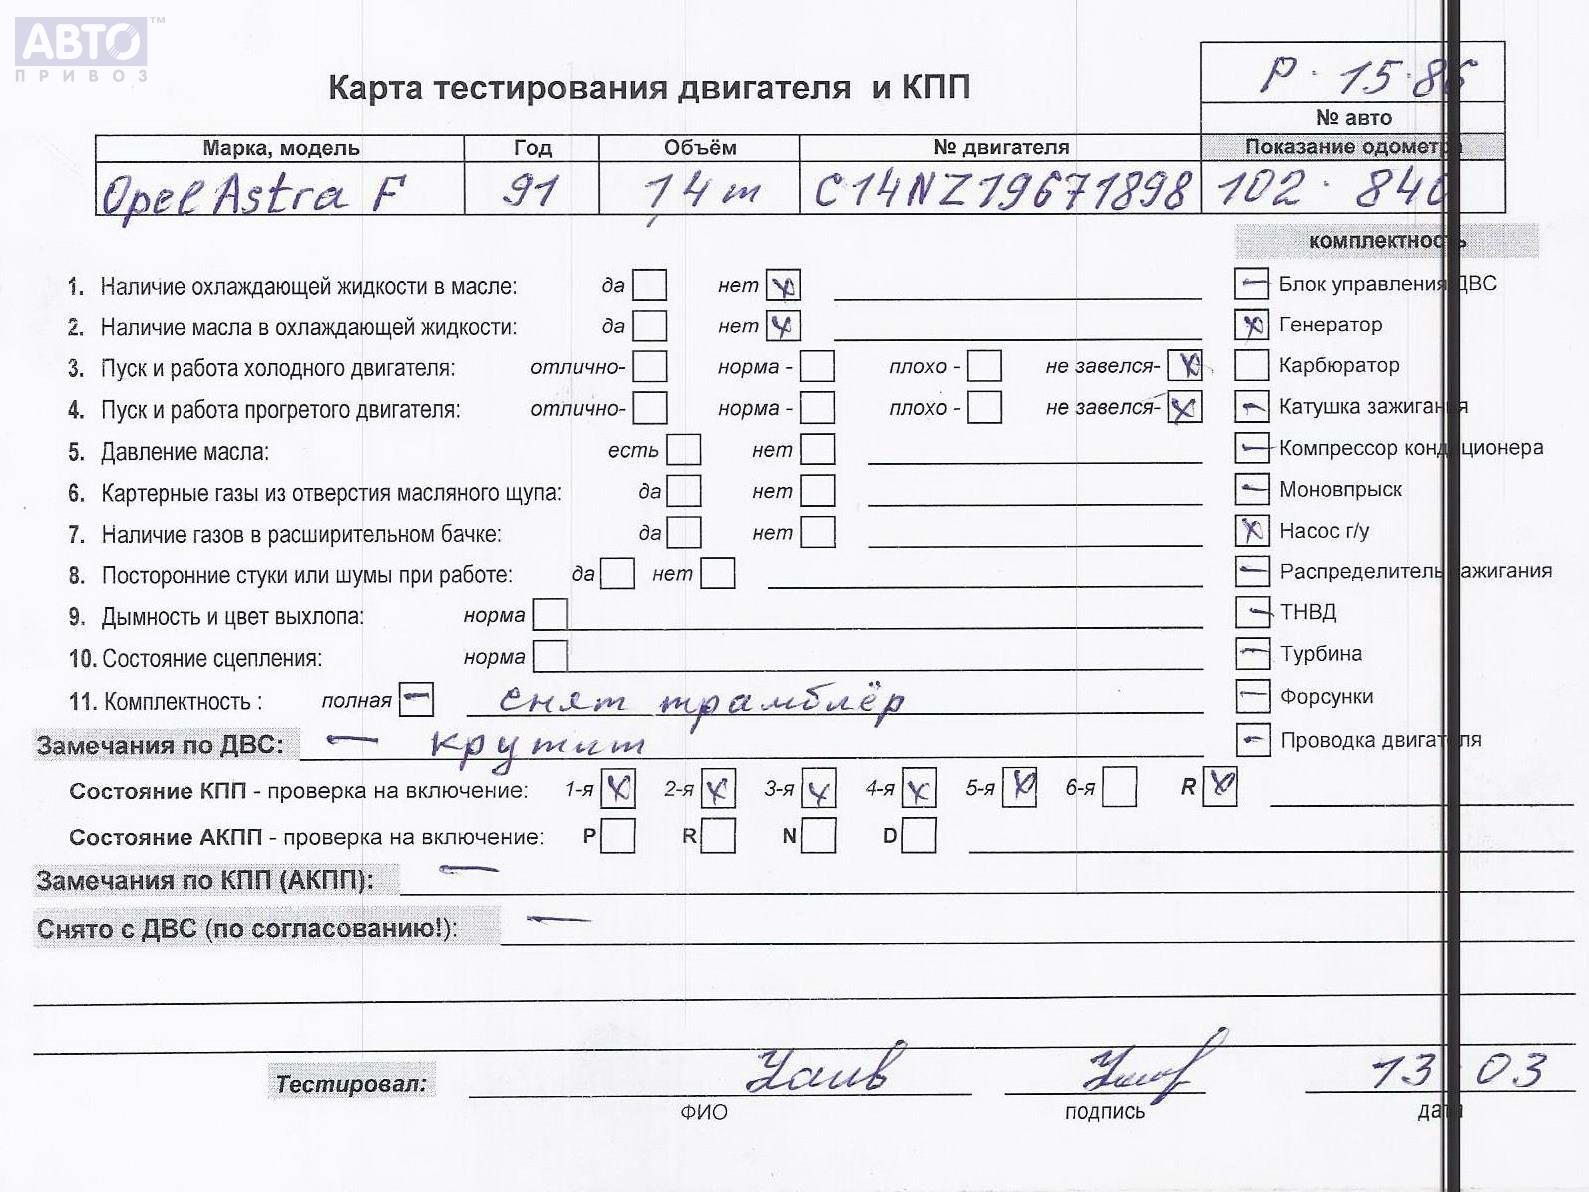 АВТО™
ПРИВОЗ
Карта тестирования двигателя и КПП
Р · 15·86
№ авто
Марка, модель Год Объём № двигателя Показание одометра
Opel Astra F 91 1,4 m C14NZ19671898 102 · 840
комплектность
1. Наличие охлаждающей жидкости в масле: да нет x
Блок управления ДВС
2. Наличие масла в охлаждающей жидкости: да нет x
Генератор
3. Пуск и работа холодного двигателя: отлично- норма - плохо - не завелся- x
Карбюратор
4. Пуск и работа прогретого двигателя: отлично- норма - плохо - не завелся- x
Катушка зажигания
5. Давление масла: есть нет
Компрессор кондиционера
6. Картерные газы из отверстия масляного щупа: да нет
Моновпрыск
7. Наличие газов в расширительном бачке: да нет
Насос г/у
8. Посторонние стуки или шумы при работе: да нет
Распределитель зажигания
9. Дымность и цвет выхлопа: норма
ТНВД
10. Состояние сцепления: норма
Турбина
11. Комплектность : полная – снят трамблёр
Форсунки
Замечания по ДВС: — крутит
Проводка двигателя
Состояние КПП - проверка на включение: 1-я x 2-я x 3-я x 4-я x 5-я x 6-я R x
Состояние АКПП - проверка на включение: P R N D
Замечания по КПП (АКПП): —
Снято с ДВС (по согласованию!): —
Тестировал: 13 03
ФИО подпись дата